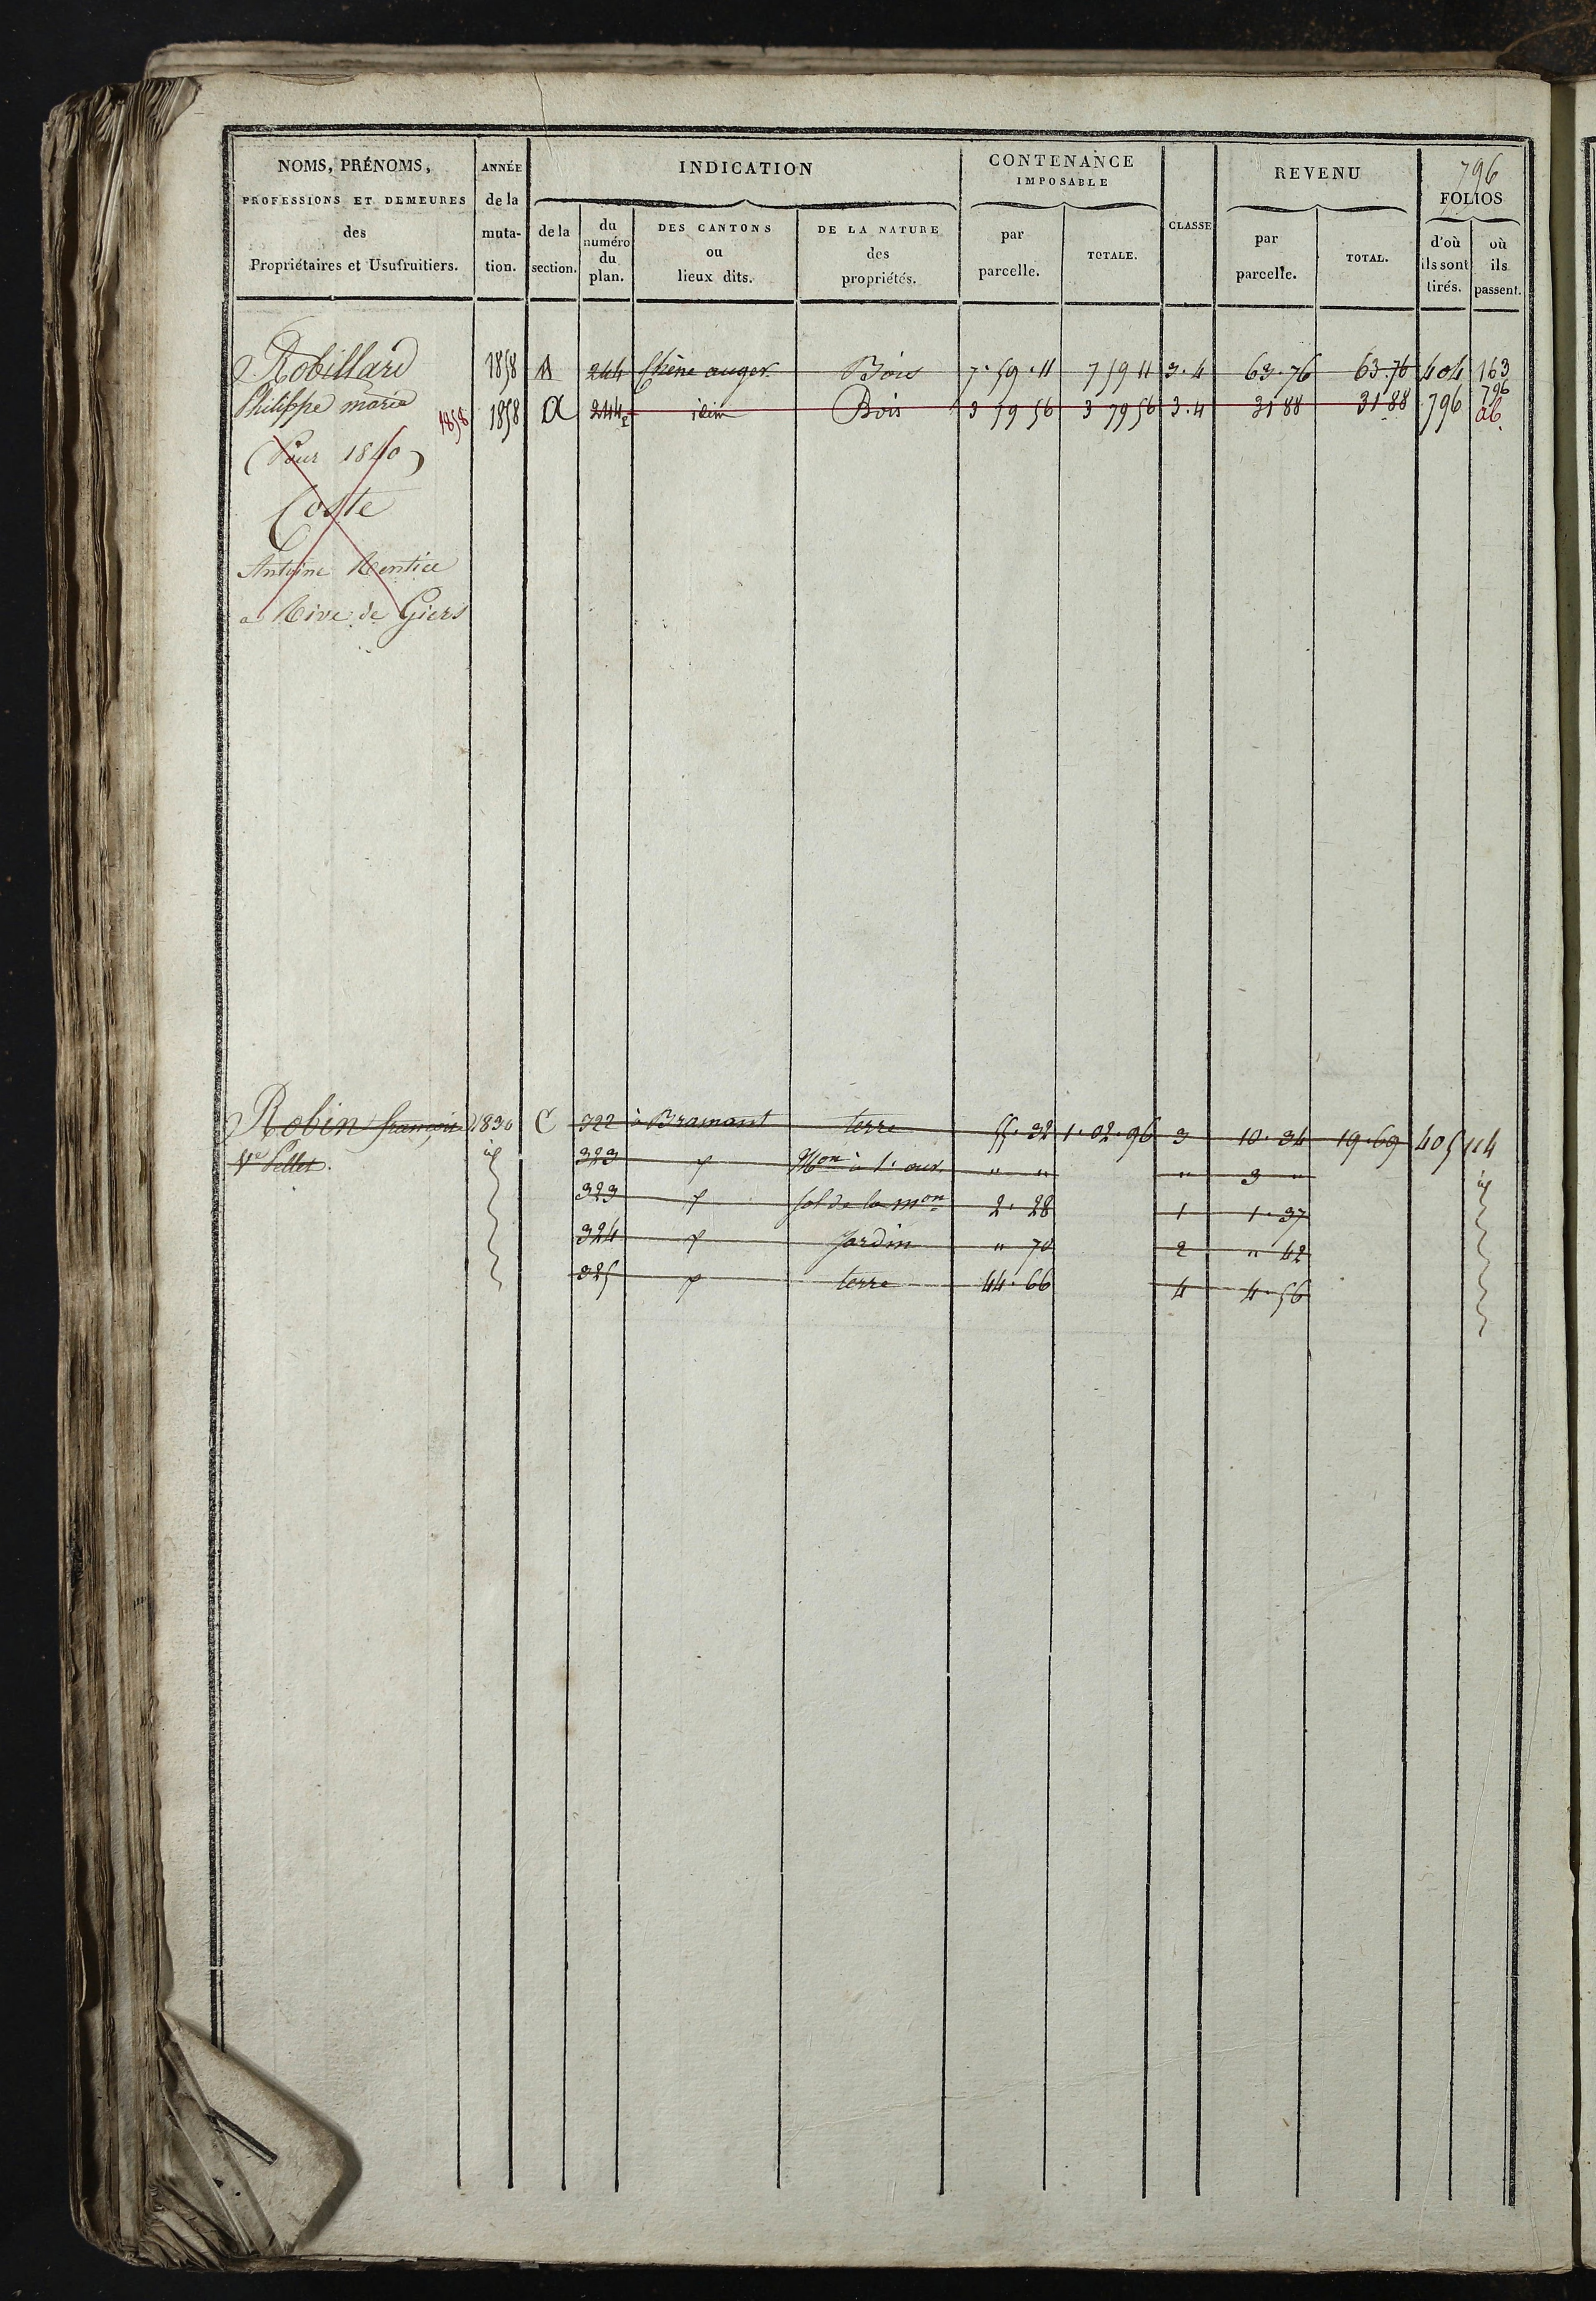 796
NOMS, PRÉNOMS,
PROFESSIONS ET DEMEURES
des
Propriétaires et Usufruitiers.
ANNÉE
de la
muta-
tion.
INDICATION
de la
section.
du
numéro
du
plan.
DES CANTONS
ou
lieux dits.
DE LA NATURE
des
propriétés.
CONTENANCE
IMPOSABLE
par
parcelle.
TOTALE.
CLASSE
REVENU
par
parcelle.
TOTAL.
FOLIOS
d'où
ils sont
tirés.
où
ils
passent.
Robillard 1858 A 244 Chêne auger Bois 7.59.11 7 59 11 3.4 63.76 63.76 404 163
796
Philippe marie 1858 1858 A 244 idem Bois 3 79 56 3 79 56 3.4 31 88 31 88 796 ab.
(Pour 1840)
Coste
Antoine Rentier
a Rive de Giers
Robin françois 1830 C 322 à Bramant terre 55.32 1.02.96 3 10.34 19.69 405 114
Ve Pellet. id 323 Mon à 1. ouv. " " " 3 " id
323 sol de la mon 2.28 1 1.37
324 Jardin " 70 2 " 42
325 terre 44.66 4 4.56